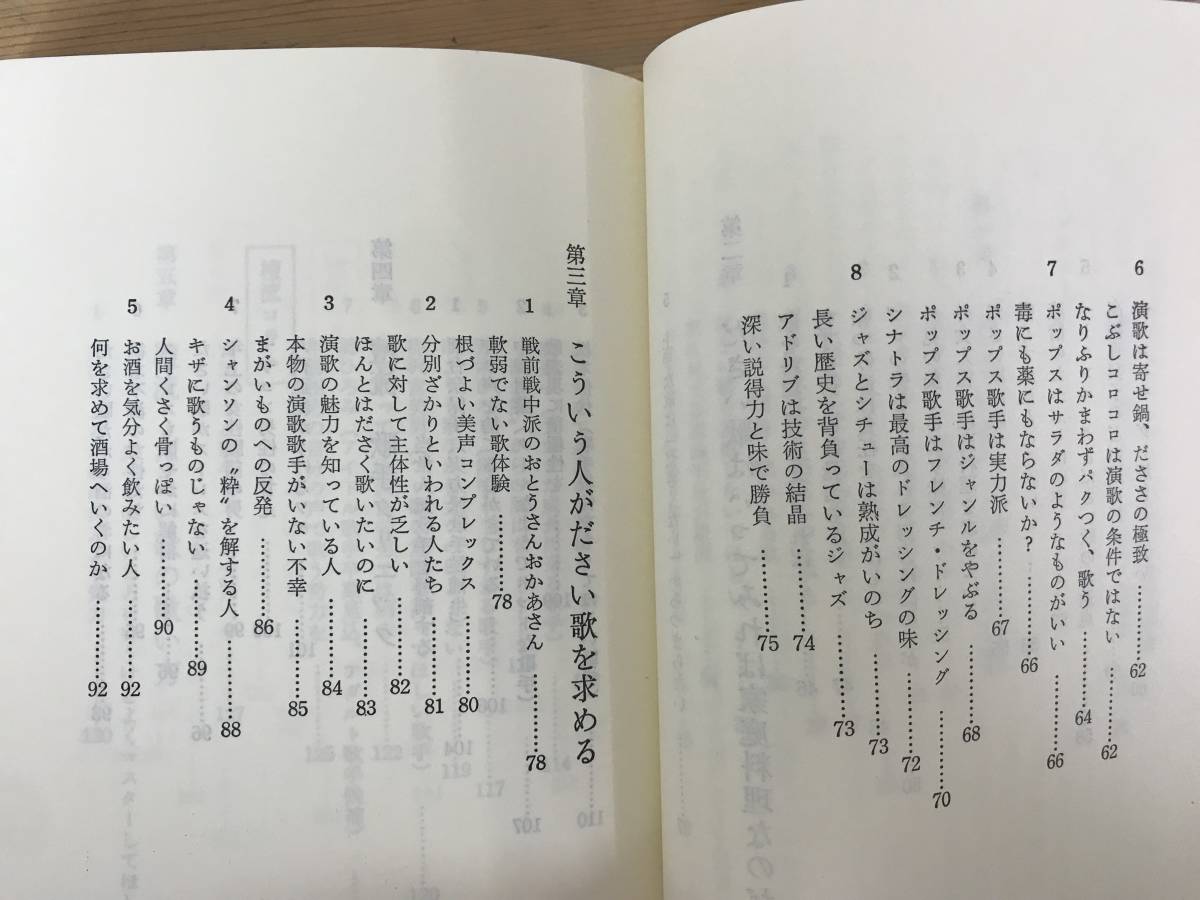 6 演歌は寄せ鍋、だささの極致…………62
こぶしコロコロは演歌の条件ではない…………62
なりふりかまわずパクつく、歌う…………64
7 ポップスはサラダのようなものがいい…………66
毒にも薬にもならないか？…………66
ポップス歌手は実力派…………67
ポップス歌手はジャンルをやぶる…………68
ポップス歌手はフレンチ・ドレッシング…………70
シナトラは最高のドレッシングの味…………72
8 ジャズとシチューは熟成がいのち…………73
長い歴史を背負っているジャズ…………73
アドリブは技術の結晶…………74
深い説得力と味で勝負…………75
第三章 こういう人がださい歌を求める
1 戦前戦中派のおとうさんおかあさん…………78
軟弱でない歌体験…………78
根づよい美声コンプレックス…………80
2 分別ざかりといわれる人たち…………81
歌に対して主体性が乏しい…………82
ほんとはださく歌いたいのに…………83
3 演歌の魅力を知っている人…………84
本物の演歌歌手がいない不幸…………85
まがいものへの反発…………86
4 シャンソンの〝粋〟を解する人…………88
キザに歌うものじゃない…………89
人間くさく骨っぽい…………90
5 お酒を気分よく飲みたい人…………92
何を求めて酒場へいくのか…………92